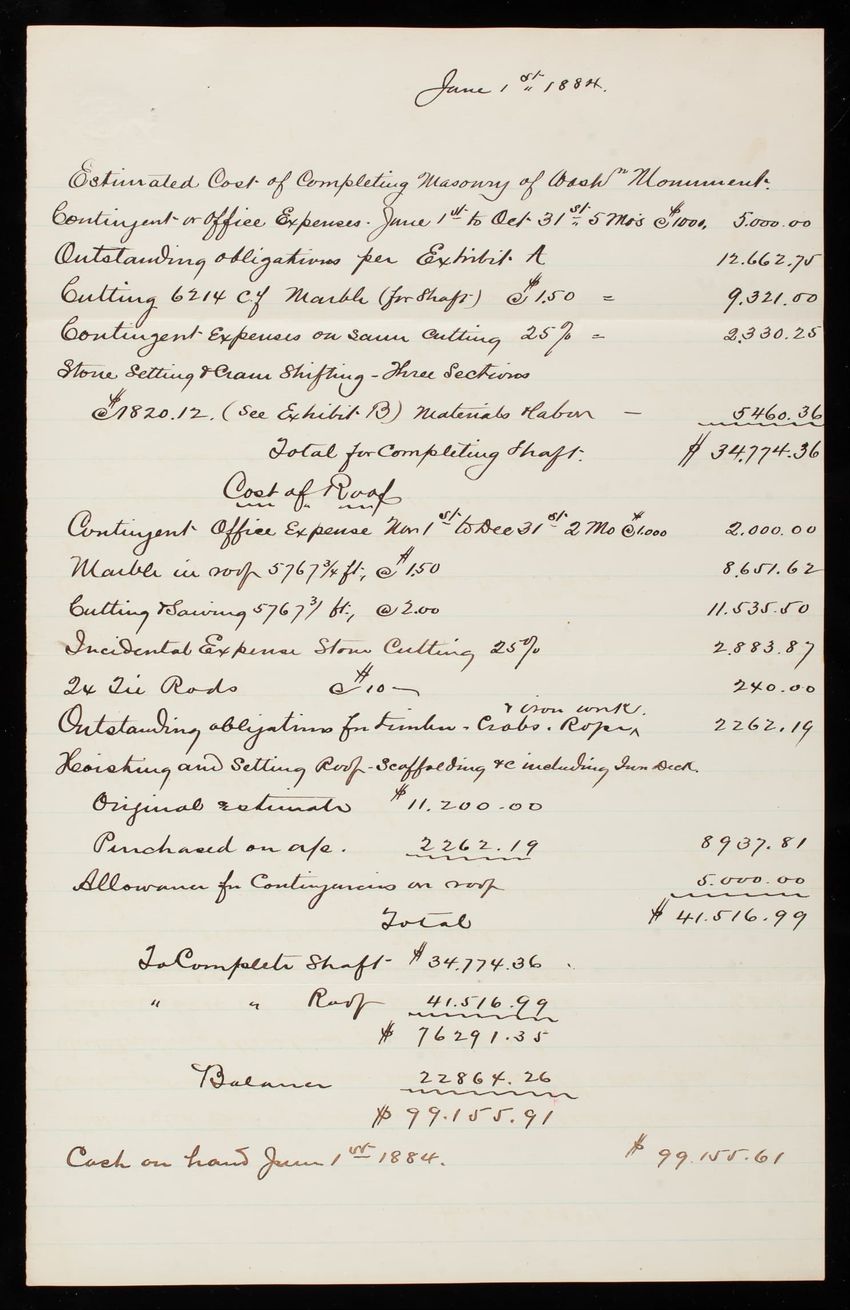 June 1st 1884.
Estimated Cost of Completing Masonry of Washn Monument.
Contingent or Office Expenses - June 1st to Oct 31st 5 Mo's @ $1000. 5.000.00
Outstanding obligations per Exhibit A 12.662.75
Cutting 6214 c.f Marble (for Shaft) @ $1.50 = 9.321.00
Contingent Expenses on same cutting 25% = 2,330.25
Stone Setting & Crane Shifting - Three Sections
@ $1820.12. (See Exhibit B) Materials & labor — 5460.36
Total for Completing Shaft. $ 34,774.36
Cost of Roof
Contingent Office Expense Nov 1st to Dec 31st 2 Mo @ $1.000 2.000.00
Marble in roof 5767 3/4 ft, @ $1.50 8,651.62
Cutting & Sawing 5767 3/ ft, @ 2.00 11.535.50
Incidental Expense Stone Cutting 25% 2.883.87
24 Tie Rods @ $10— 240.00
& iron work.
Outstanding obligations for timber - Crabs. Ropes 2262.19
Hoisting and Setting Roof - Scaffolding &c including Iron Deck.
Original estimate $11.200.00
Purchased on a/c. 2262.19 8937.81
Allowance for Contingencies on roof 5.000.00
Total $ 41.516.99
To Complete Shaft $34.774.36
" " Roof 41.516.99
$ 76291.35
Balance 22864.26
$ 99.155.91
Cash on hand June 1st 1884. $ 99.155.61